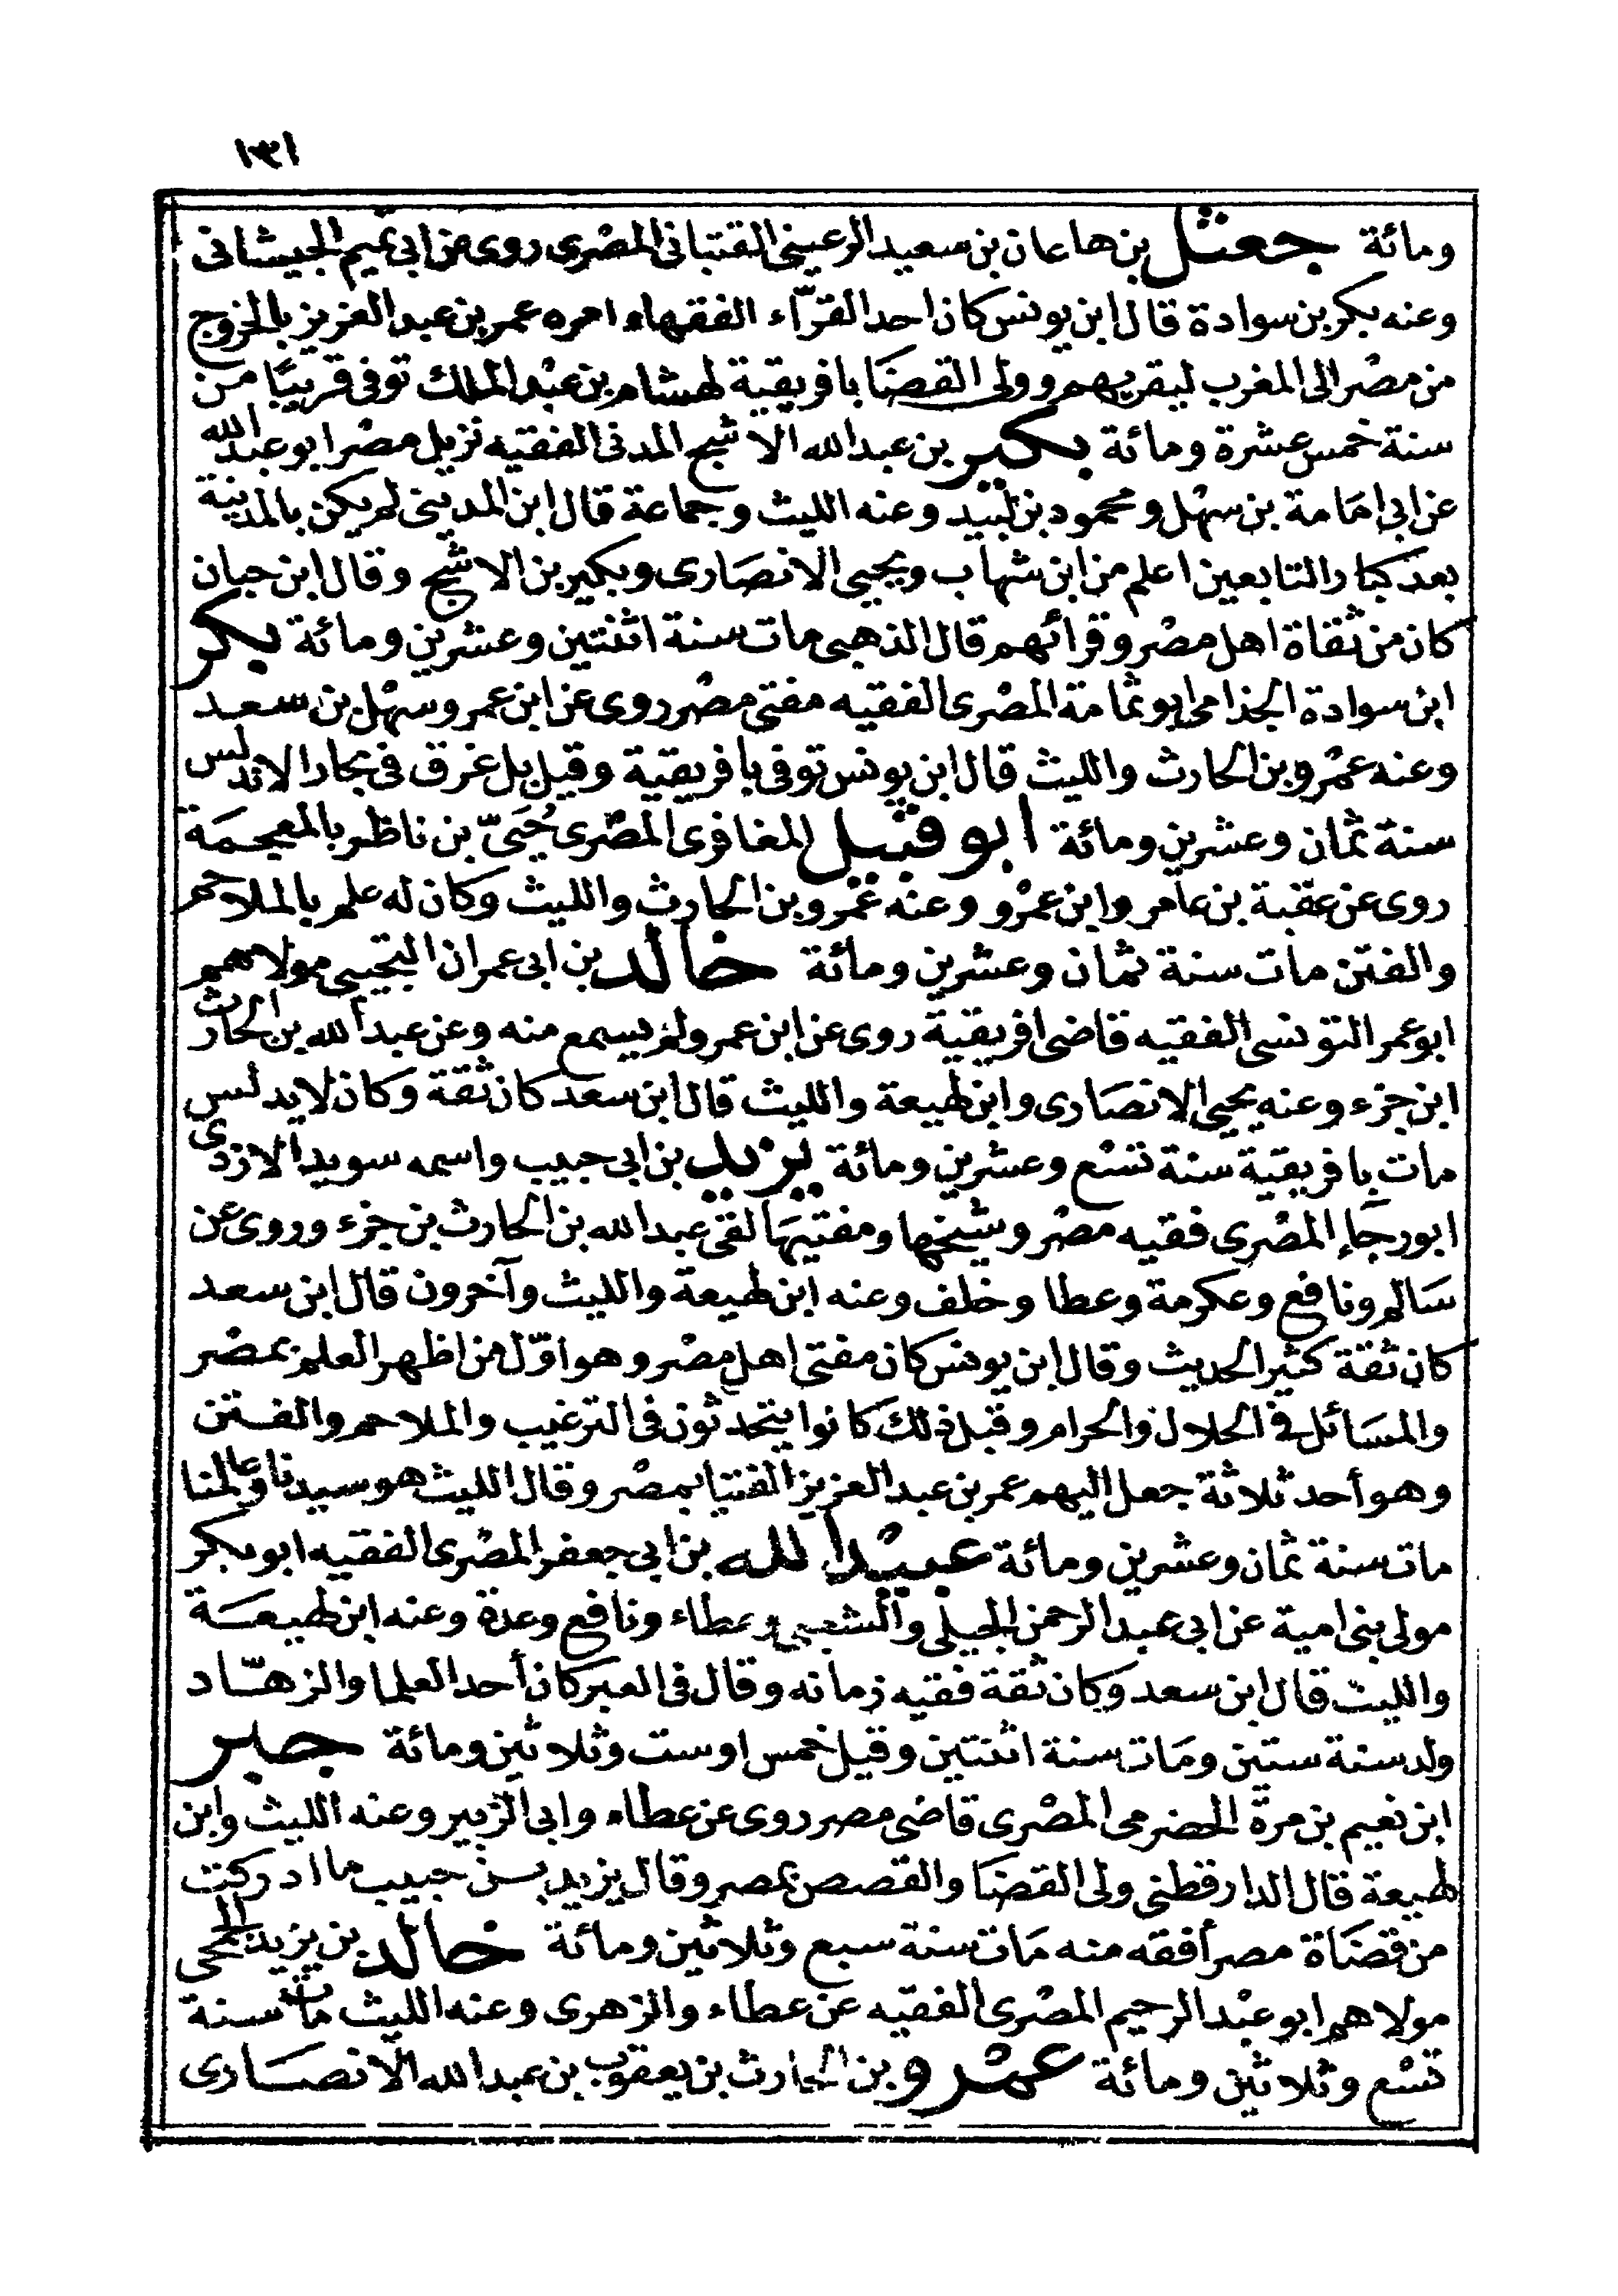 ١٣١
ومائة جعثل بن هاعان بن سعيد الرعيني القتباني المصرى روى عن ابي تميم الجيشاني
وعنه بكر بن سوادة قال ابن يونس كان احد القرّاء الفقهاء امره عمر بن عبد العزيز بالخروج
من مصر الى المغرب ليقريهم وولى القضا بافريقية لهشام بن عبد الملك توفى قريبًا من
سنة خمس عشرة ومائة بكير بن عبد الله الاشج المدنى الفقيه نزيل مصر ابو عبد الله
عن ابي امامة بن سهل ومحمود بن لبيد وعنه الليث وجماعة قال ابن المديني لم يكن بالمدينة
بعد كبار التابعين اعلم من ابن شهاب ويحيى الانصارى وبكير بن الاشج وقال ابن حبان
كان من ثقاة اهل مصر وقرائهم قال الذهبى مات سنة اثنتين وعشرين ومائة بكر
ابن سوادة الجذامى ابو ثمامة المصرى الفقيه مفتى مصر روى عن ابن عمر وسهل بن سعد
وعنه عمرو بن الحارث والليث قال ابن يونس توفى بافريقية وقيل بل غرق فى بحار الاندلس
سنة ثمان وعشرين ومائة ابو قبيل المغافرى المصرى حُيَىّ بن ناظر بالمعجمة
روى عن عقبة بن عامر وابن عمرو وعنه عمرو بن الحارث والليث وكان له علم بالملاحم
والفتن مات سنة ثمان وعشرين ومائة خالد بن ابى عمران التجيبى مولاهم
ابو عمر التونسى الفقيه قاضى افريقية روى عن ابن عمر ولم يسمع منه وعن عبد الله بن الحارث
ابن جزء وعنه يحيى الانصارى وابن لهيعة والليث قال ابن سعد كان ثقة وكان لا يدلس
مات بافريقية سنة تسع وعشرين ومائة يزيد بن ابي حبيب واسمه سويد الازدى
ابو رجاء المصرى فقيه مصر وشيخها ومفتيها لقى عبد الله بن الحارث بن جزء وروى عن
سالم ونافع وعكرمة وعطا وخلف وعنه ابن لهيعة والليث وآخرون قال ابن سعد
كان ثقة كثير الحديث وقال ابن يونس كان مفتى اهل مصر وهو اوّل من اظهر العلم بمصر
والمسائل فى الحلال والحرام وقبل ذلك كانوا يتحدثون فى الترغيب والملاحم والفتن
وهو أحد ثلاثة جعل اليهم عمر بن عبد العزيز الفتيا بمصر وقال الليث هو سيدنا وعالمنا
مات سنة ثمان وعشرين ومائة عبيد الله بن ابي جعفر المصرى الفقيه ابو بكر
مولى بنى امية عن ابي عبد الرحمن الجبلى والشعبى وعطاء ونافع وعدة وعنه ابن لهيعة
والليث قال ابن سعد وكان ثقة فقيه زمانه وقال فى العبر كان أحد العلما والزهّاد
ولد سنة ستين ومات سنة اثنتين وقيل خمس او ست وثلاثين ومائة جبر
ابن نعيم بن مرة الحضرمى المصرى قاضى مصر روى عن عطاء وابى الزبير وعنه الليث وابن
لهيعة قال الدارقطنى ولى القضا والقصص بمصر وقال يزيد بن حبيب ما ادركت
من قضاة مصر أفقه منه مات سنة سبع وثلاثين ومائة خالد بن يزيد الجمحى
مولاهم ابو عبد الرحيم المصرى الفقيه عن عطاء والزهرى وعنه الليث مات سنة
تسع وثلاثين ومائة عمرو بن الحارث بن يعقوب بن عبد الله الانصارى